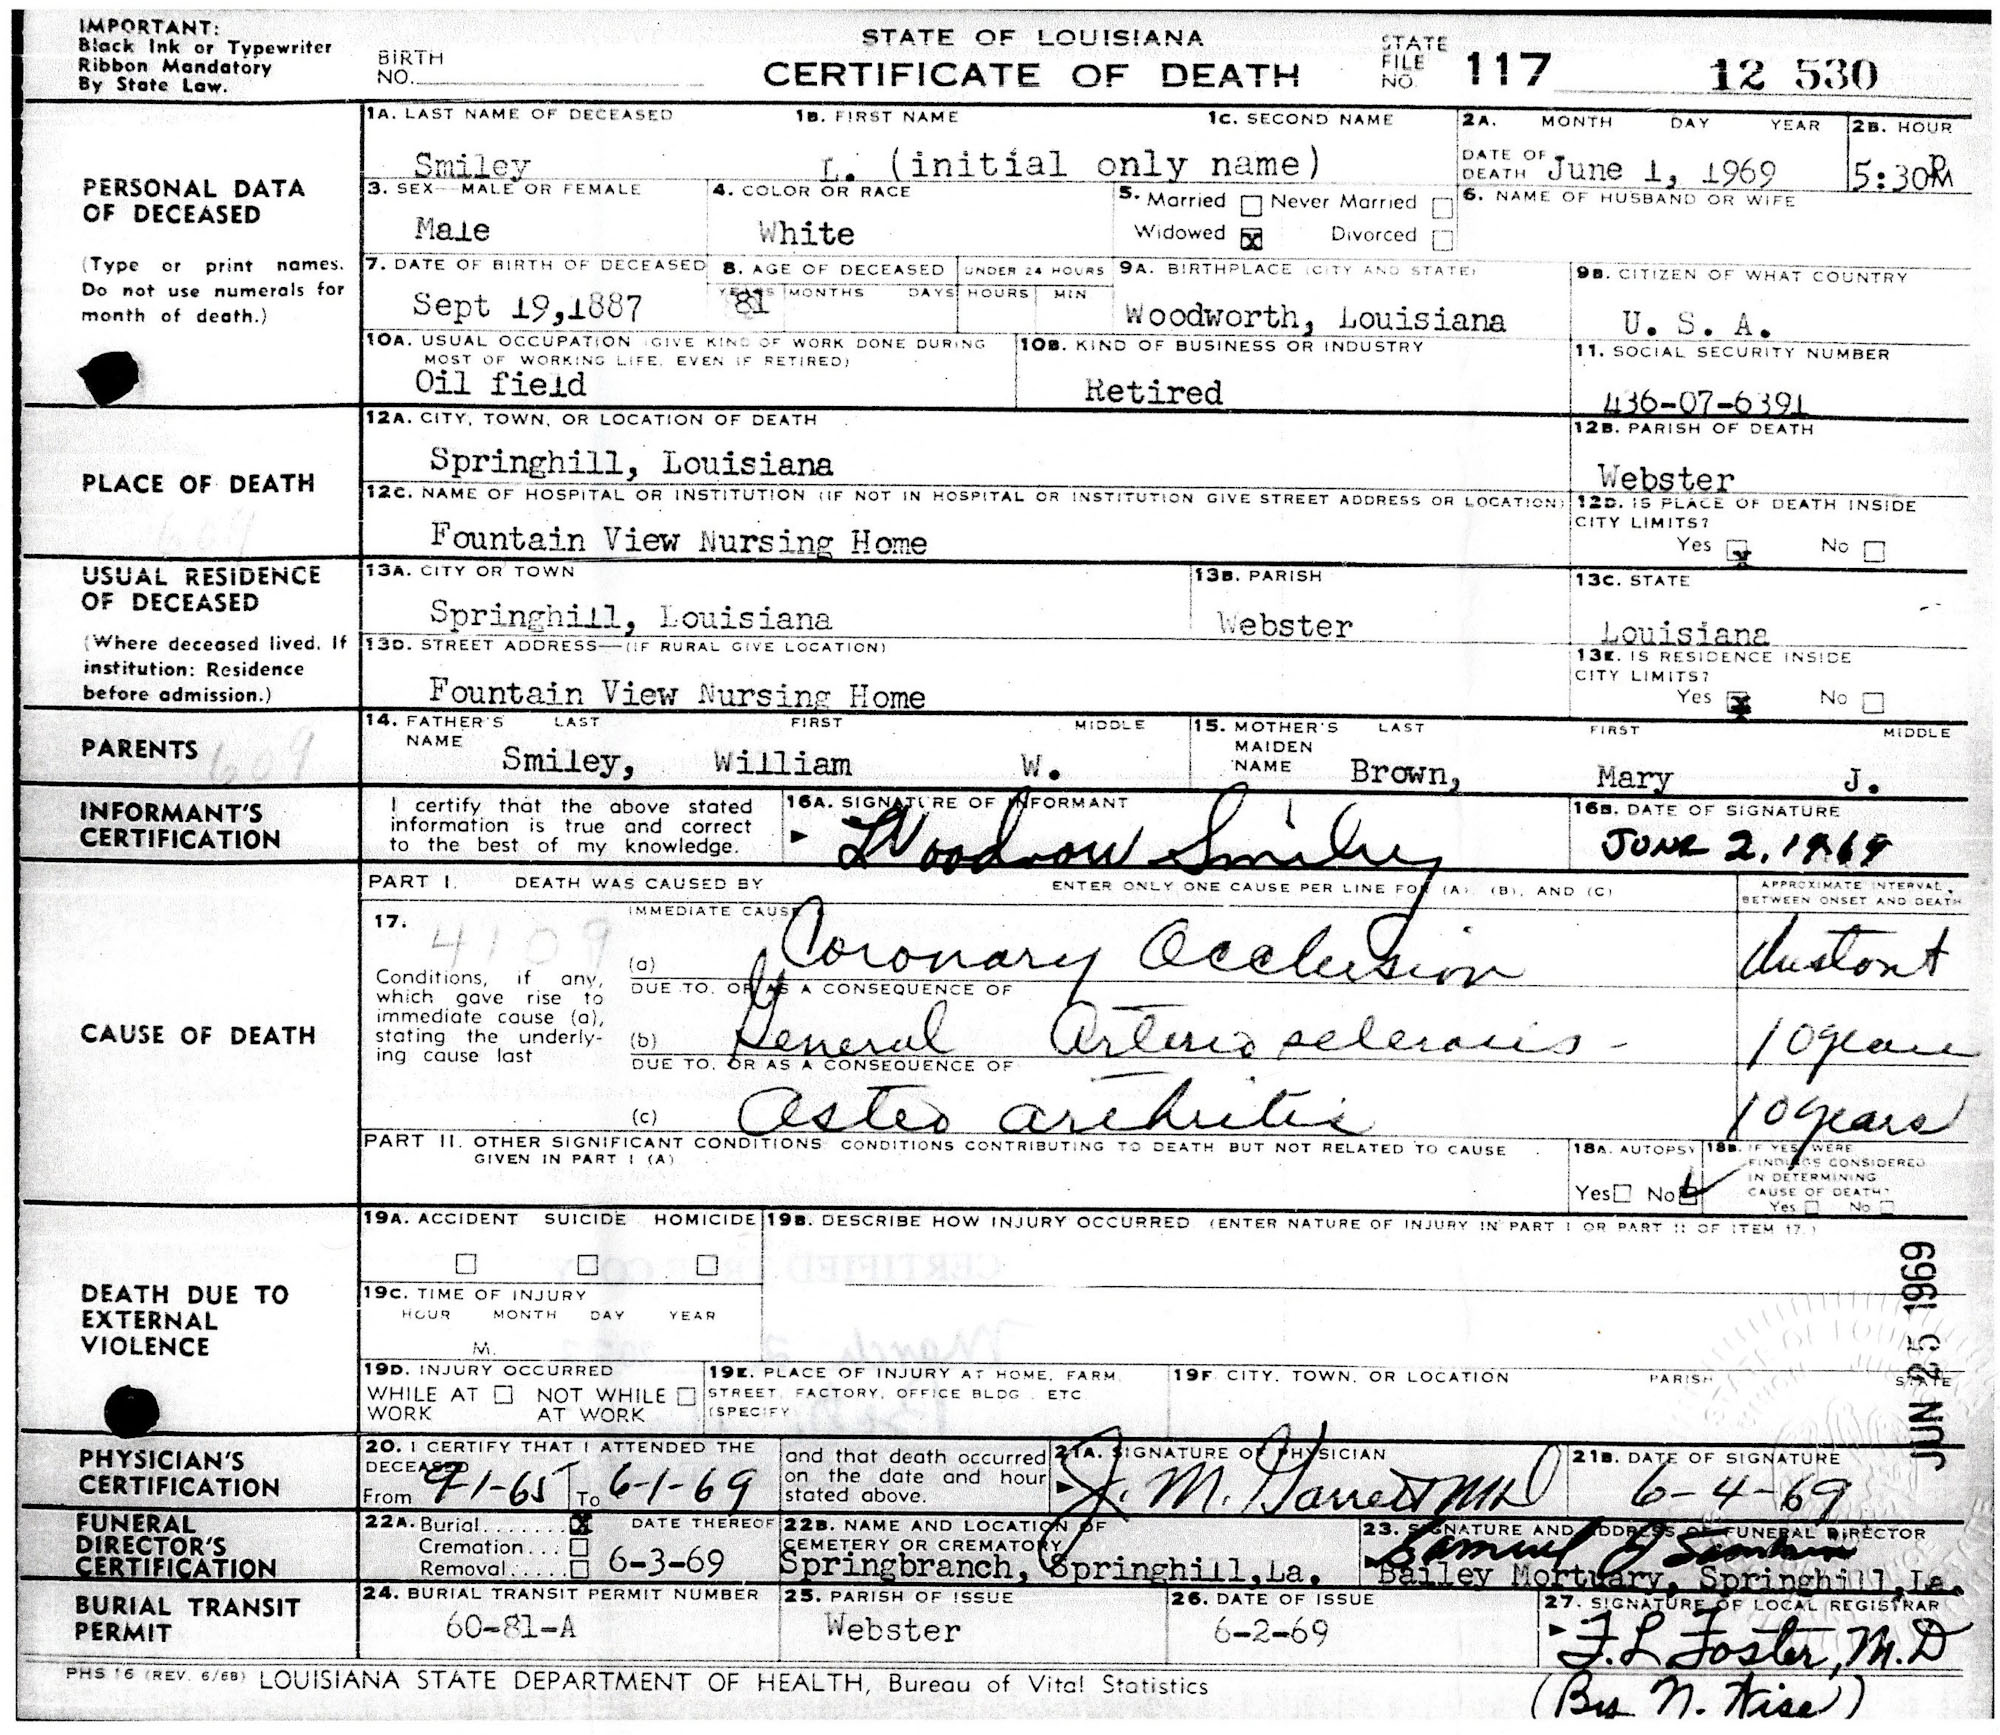 IMPORTANT:
Black Ink or Typewriter
Ribbon Mandatory
By State Law.
BIRTH
NO.
STATE OF LOUISIANA
CERTIFICATE OF DEATH
STATE
FILE
NO.
117
12 530
PERSONAL DATA
OF DECEASED
(Type or print names.
Do not use numerals for
month of death.)
1A. LAST NAME OF DECEASED
Smiley
1B. FIRST NAME
L. (initial only name)
1C. SECOND NAME
2A. MONTH DAY YEAR
DATE OF
DEATH June 1, 1969
2B. HOUR
5:30PM
3. SEX—MALE OR FEMALE
Male
4. COLOR OR RACE
White
5. Married Never Married
Widowed x Divorced
6. NAME OF HUSBAND OR WIFE
7. DATE OF BIRTH OF DECEASED
Sept 19,1887
8. AGE OF DECEASED
YEARS MONTHS DAYS
81
UNDER 24 HOURS
HOURS MIN
9A. BIRTHPLACE (CITY AND STATE)
Woodworth, Louisiana
9B. CITIZEN OF WHAT COUNTRY
U. S. A.
10A. USUAL OCCUPATION (GIVE KIND OF WORK DONE DURING
MOST OF WORKING LIFE, EVEN IF RETIRED)
Oil field
10B. KIND OF BUSINESS OR INDUSTRY
Retired
11. SOCIAL SECURITY NUMBER
436-07-6391
PLACE OF DEATH
609
12A. CITY, TOWN, OR LOCATION OF DEATH
Springhill, Louisiana
12B. PARISH OF DEATH
Webster
12C. NAME OF HOSPITAL OR INSTITUTION (IF NOT IN HOSPITAL OR INSTITUTION GIVE STREET ADDRESS OR LOCATION)
Fountain View Nursing Home
12D. IS PLACE OF DEATH INSIDE
CITY LIMITS?
Yes x No
USUAL RESIDENCE
OF DECEASED
(Where deceased lived. If
institution: Residence
before admission.)
13A. CITY OR TOWN
Springhill, Louisiana
13B. PARISH
Webster
13C. STATE
Louisiana
13D. STREET ADDRESS—(IF RURAL GIVE LOCATION)
Fountain View Nursing Home
13E. IS RESIDENCE INSIDE
CITY LIMITS?
Yes x No
PARENTS
609
14. FATHER'S LAST FIRST MIDDLE
NAME
Smiley, William W.
15. MOTHER'S LAST FIRST MIDDLE
MAIDEN
NAME
Brown, Mary J.
INFORMANT'S
CERTIFICATION
I certify that the above stated
information is true and correct
to the best of my knowledge.
16A. SIGNATURE OF INFORMANT
Woodrow Smiley
16B. DATE OF SIGNATURE
JUNE 2, 1969
CAUSE OF DEATH
PART I. DEATH WAS CAUSED BY
ENTER ONLY ONE CAUSE PER LINE FOR (A), (B), AND (C)
APPROXIMATE INTERVAL
BETWEEN ONSET AND DEATH
17.
4109
Conditions, if any,
which gave rise to
immediate cause (a),
stating the underly-
ing cause last
IMMEDIATE CAUSE
(a) Coronary Occlusion
Instant
DUE TO, OR AS A CONSEQUENCE OF
(b) General Arterio sclerosis -
10 years
DUE TO, OR AS A CONSEQUENCE OF
(c) Osteo arthritis
10 years
PART II. OTHER SIGNIFICANT CONDITIONS: CONDITIONS CONTRIBUTING TO DEATH BUT NOT RELATED TO CAUSE
GIVEN IN PART I (A)
18A. AUTOPSY
Yes No
18B. IF YES, WERE
FINDINGS CONSIDERED
IN DETERMINING
CAUSE OF DEATH?
Yes No
DEATH DUE TO
EXTERNAL
VIOLENCE
19A. ACCIDENT SUICIDE HOMICIDE
19B. DESCRIBE HOW INJURY OCCURRED (ENTER NATURE OF INJURY IN PART I OR PART II OF ITEM 17.)
19C. TIME OF INJURY
HOUR MONTH DAY YEAR
M.
19D. INJURY OCCURRED
WHILE AT NOT WHILE
WORK AT WORK
19E. PLACE OF INJURY AT HOME, FARM,
STREET, FACTORY, OFFICE BLDG., ETC.
(SPECIFY)
19F. CITY, TOWN, OR LOCATION PARISH STATE
JUN 25 1969
PHYSICIAN'S
CERTIFICATION
20. I CERTIFY THAT I ATTENDED THE
DECEASED
From 9-1-65 To 6-1-69
and that death occurred
on the date and hour
stated above.
21A. SIGNATURE OF PHYSICIAN
J. M. Garrett MD
21B. DATE OF SIGNATURE
6-4-69
FUNERAL
DIRECTOR'S
CERTIFICATION
22A. Burial....... x DATE THEREOF
Cremation...
Removal.....
6-3-69
22B. NAME AND LOCATION OF
CEMETERY OR CREMATORY
Springbranch, Springhill,La.
23. SIGNATURE AND ADDRESS OF FUNERAL DIRECTOR
Samuel J
Bailey Mortuary, Springhill,La.
BURIAL TRANSIT
PERMIT
24. BURIAL TRANSIT PERMIT NUMBER
60-81-A
25. PARISH OF ISSUE
Webster
26. DATE OF ISSUE
6-2-69
27. SIGNATURE OF LOCAL REGISTRAR
F. L. Foster, M.D
(By N. Wise)
PHS 16 (REV. 6/68) LOUISIANA STATE DEPARTMENT OF HEALTH, Bureau of Vital Statistics